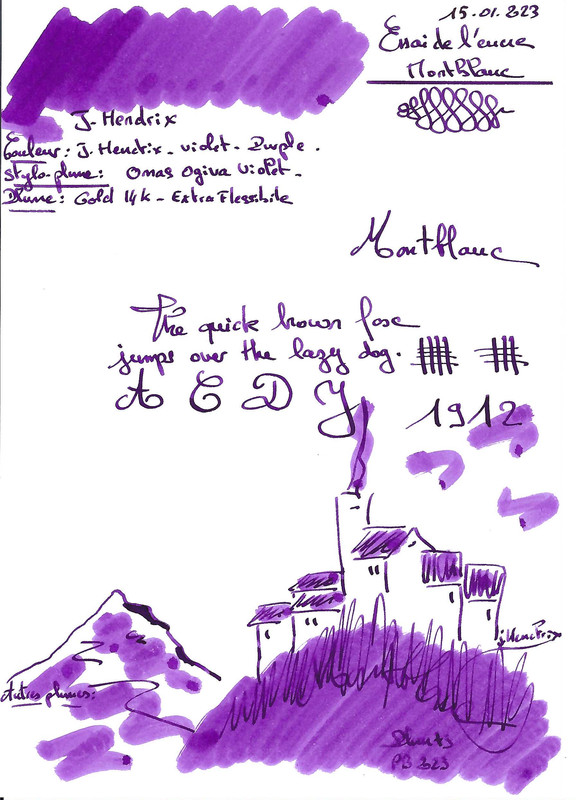 15.01.223
Essai de l'encre
Montblanc
J. Hendrix
Couleur: J. Hendrix - Violet - Purple.
Stylo-plume: Omas Ogiva Violet -
Plume: Gold 14k - Extra Flessibile
Montblanc
The quick brown fox
jumps over the lazy dog.
A C D J 1912
j Hendrix
Autres plumes:
PB 223